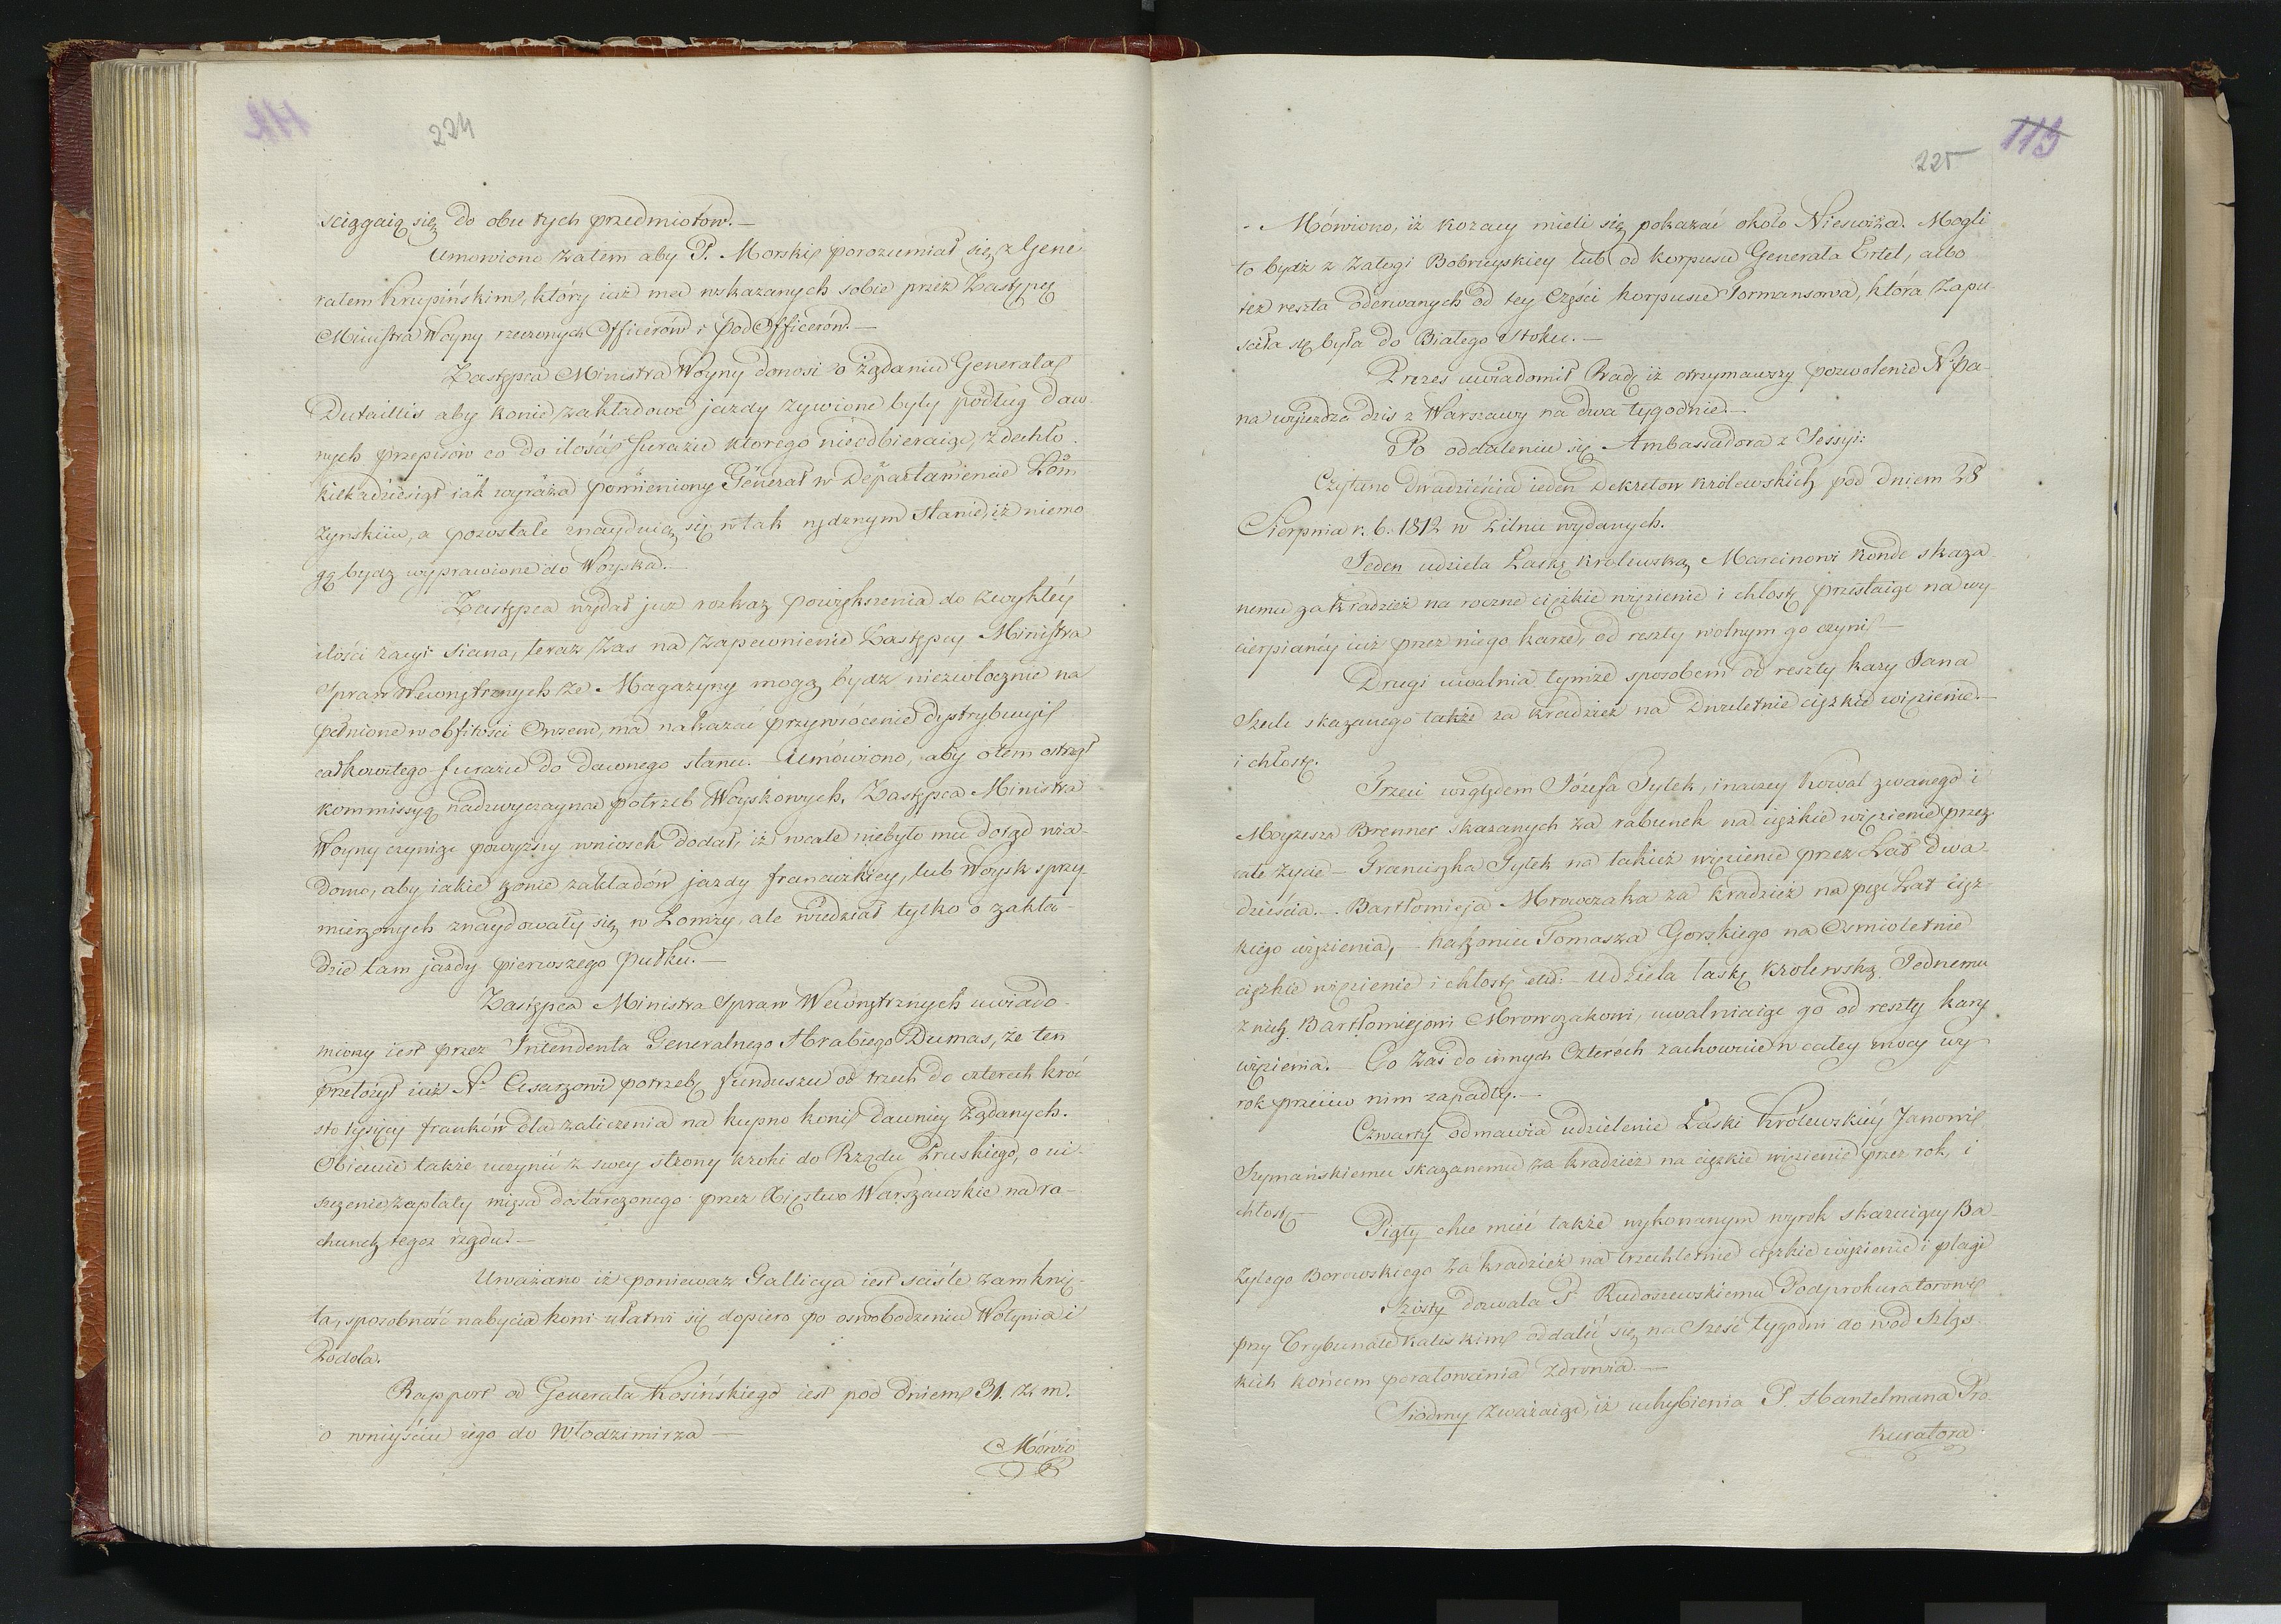 224
ściągaią się do obu tych przedmiotów. —
Umowiono zatem aby P. Morski porozumiał się z Gene
rałem Krupińskim, który iuż ma wskazanych sobie przez Zastępcę
Ministra Woyny rzeczonych Officerów i pod Officerów. —
Zastępca Ministra Woyny donosi o żądaniu Generała
Dutaillis aby konie zakładowe jazdy żywione były podług daw-
nych przepisów co do ilości furażu ktorego nieodbieraiąc, zdechło
kilkadziesiąt iak wyraża pomieniony Generał w Departamencie Łom
żynskim, a pozostałe znayduią się w tak nędznym stanie, iż niemo
gą bydz wyprawione do Woyska. —
Zastępca wydał juz rozkaz powiększenia do zwykłéy
ilości racyi siana, teraz zas na zapewnienie Zastępcy Ministra
Spraw Wewnętrznych że Magazyny mogą bydz niezwłocznie na
pełnione w obfitości Owsem, ma nakazać przywrócenie dystrybucyi
całkowitego furażu do dawnego stanu. Umówiono, aby o tem ostrzegł
kommissyą nadzwyczayną potrzeb Woyskowych. Zastępca Ministra
Woyny czyniąc powyższy wniosek dodał, iż wcale niebyło mu dotąd wia-
domo, aby iakie konie zakładów jazdy francuzkiey, lub Woysk sprzy-
mierzonych znaydowały się w Łomży, ale wiedział tylko o zakła-
dzie tam jazdy pierwszego pułku. —
Zastępca Ministra Spraw Wewnętrznych uwiado-
miony iest przez Intendenta Generalnego Hrabiego Dumas, że ten
przełożył iuż N. Cesarzowi potrzebę funduszu od trzech do czterech kroć
sto tysięcy franków dla zaliczenia na kupno koni dawniey żądanych.
Obiecuie także uczynić z swey strony kroki do Rządu Pruskiego, o ui-
szczenie zapłaty mięsa dostarczonego przez Xięstwo Warszawskie na ra-
chunek tegoż rządu. —
Uważano iż ponieważ Gallicya iest ściśle zamknię-
ta, sposobność nabycia koni ułatwi się dopiero po oswobodzeniu Wołynia i
Podola.
Rapport od Generała Kosińskiego iest pod dniem 31. z. m.
o wniyściu iego do Włodzimirza —
Mówio
113
225
- Mówiono, iż kozacy mieli się pokazać około Nieswiża. Mogli
to bydź z załogi Bobruyskiey lub od korpusu Generała Ertel, albo
też reszta oderwanych od tey Części korpusu Tormansowa, która zapu-
sciła się była do Białego Stoku. —
Prezes uwiadomił Radę iż otrzymawszy pozwolenie N. Pa-
na wyjeżdża dzis z Warszawy na dwa tygodnie. —
Po oddaleniu się Ambassadora z Sessyi:
Czytano dwadzieścia ieden Dekretow królewskich pod dniem 28
Sierpnia r. b. 1812 w Pilnie wydanych.
Jeden udziela Łaskę królewską Marcinowi Konde skaza
nemu za kradzież na roczne ciężkie więzienie i chłostę przestaiąc na wy
cierpianéy iuż przez niego karze, od reszty wolnym go czyni —
Drugi uwalnia tymże sposobem od reszty kary Jana
Szule skazanego także za kradzież na Dwuletnie ciężkie więzienie. —
i chłostę.
Trzeci względem Józefa Sytek, inaczey Kowal zwanego i
Moyżesza Brenner skazanych za rabunek na ciężkie więzienie przez
całe życie — Franciszka Sytek na takież więzienie przez Lat dwa
dzieścia. — Bartłomieja Mrowczaka za kradzież na pięć Lat cięż-
kiego więzienia, — nakoniec Tomasza Gorskiego na Osmioletnie
ciężkie więzienie i chłostę etd: — Udziela łaskę królewską Jednemu
z nich Bartłomiejowi Mrowczakowi, uwalniaiąc go od reszty kary
więzienia. — Co zaś do innych Czterech zachowuie w całey mocy wy
rok przeciw nim zapadły. —
Czwarty odmawia udzielenie Łaski Królewskiéy Janowi
Szymańskiemu skazanemu za kradzież na ciężkie więzienie przez rok, i
chłostę —
Piąty chce mieć także wykonanym wyrok skazuiący Ba-
zylego Borowskiego za kradzież na trzechletnie ciężkie więzienie i plagi
Szósty dozwala P. Rudoszewskiemu Podprokuratorowi
przy Trybunale Kaliskim oddalić się na sześć tygodni do wód Szląs-
kich końcem poratowania zdrowia. —
Siódmy zważaiąc, iż uchybienia P. Hantelmana Pro
kuratora